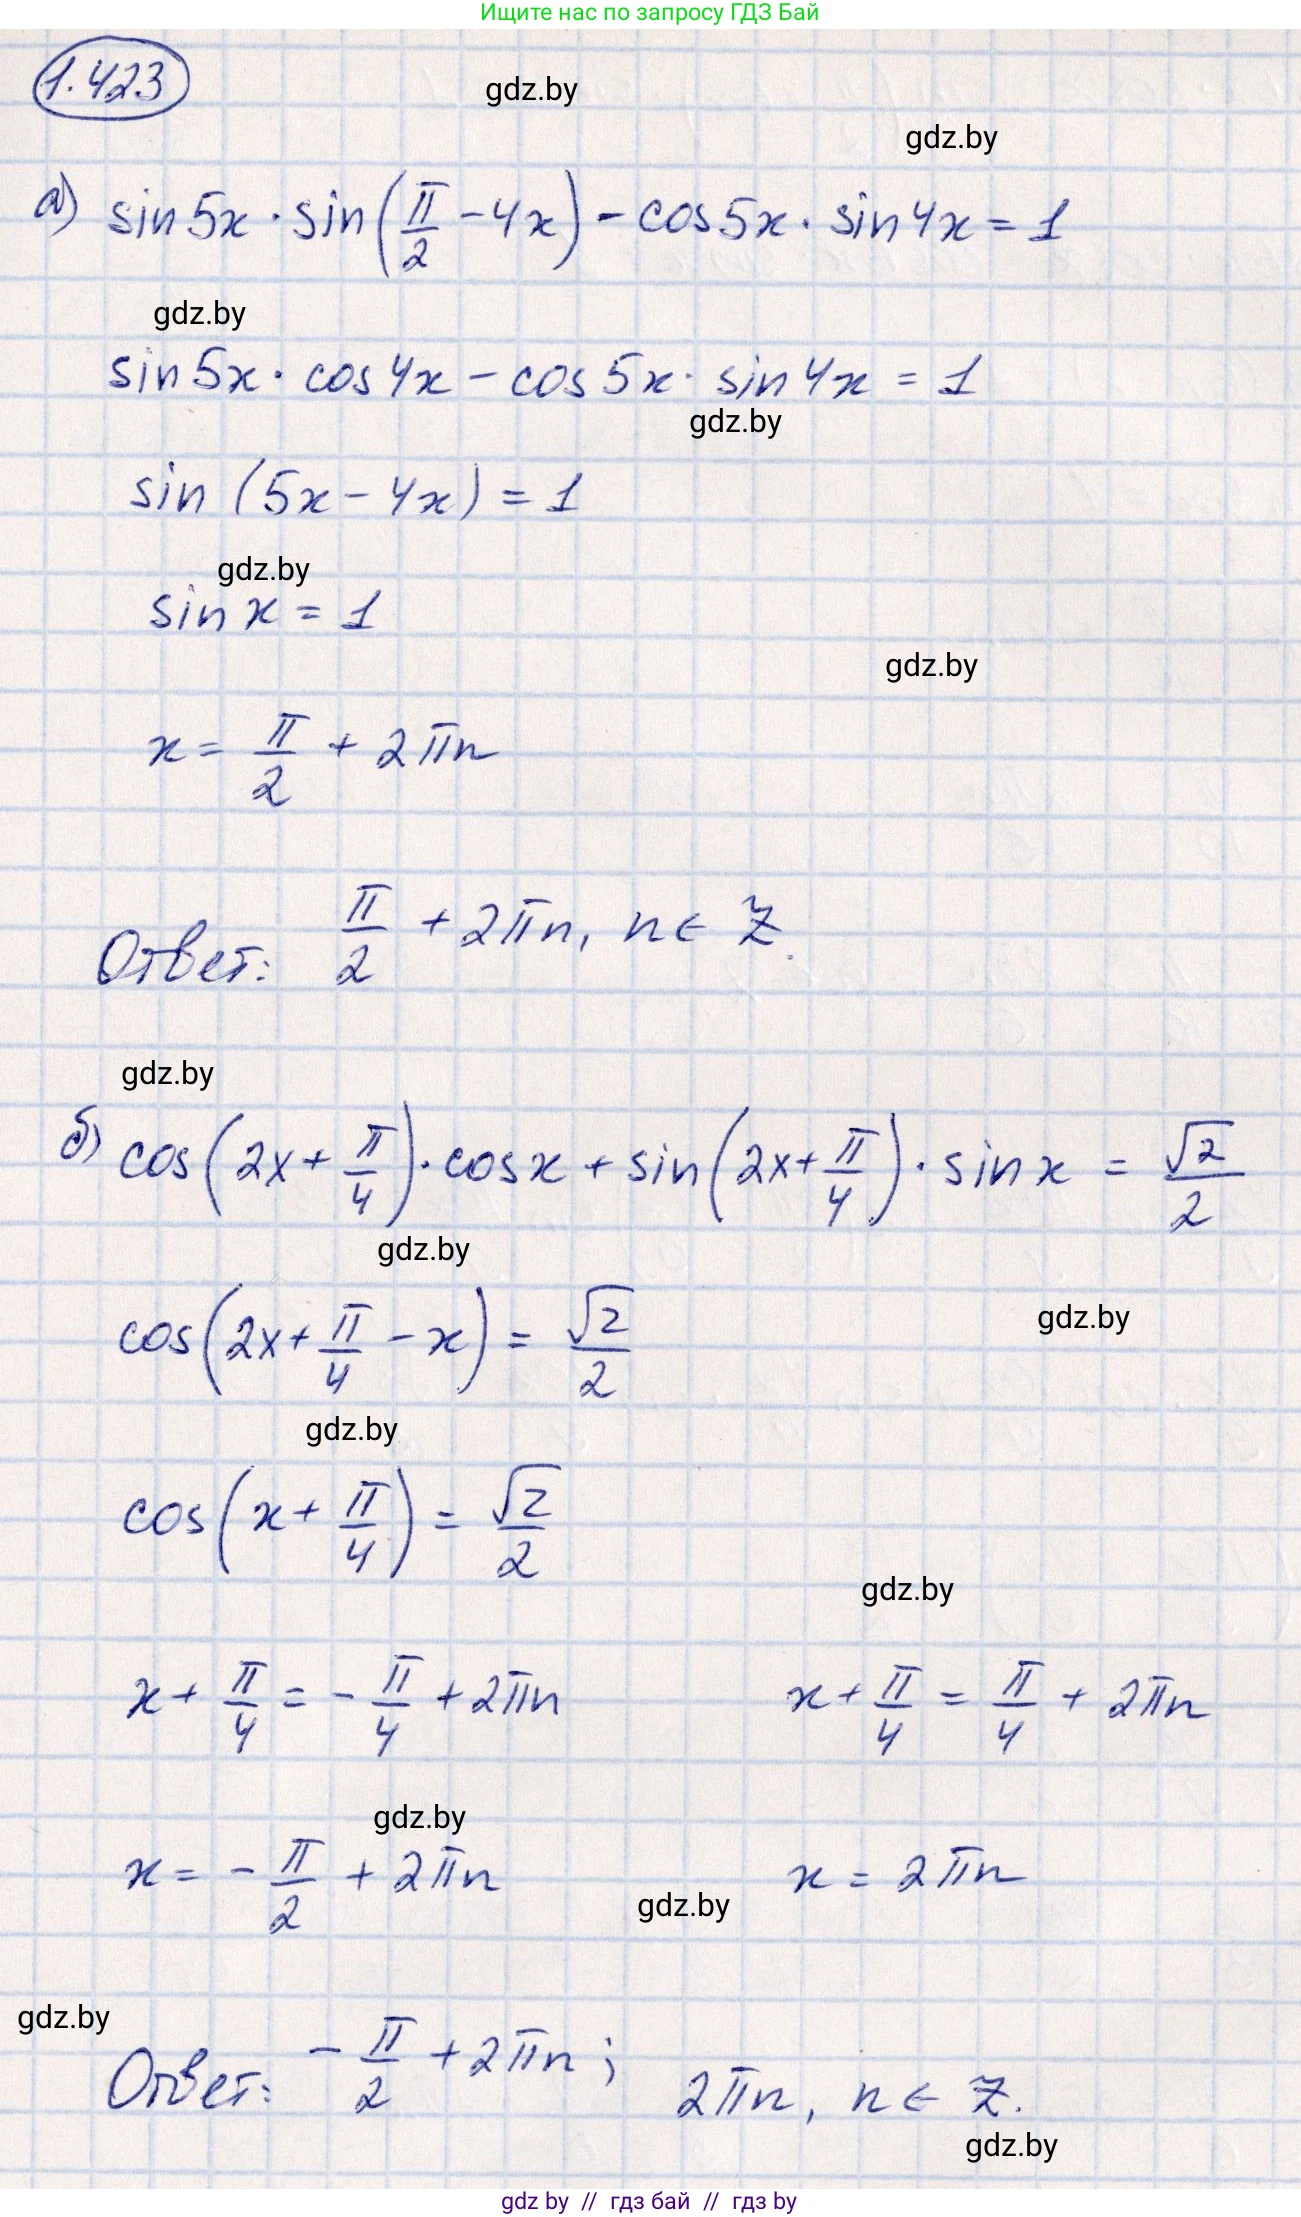 Ищите нас по запросу ГДЗ Бай
1.423
gdz.by
gdz.by
а) sin5x · sin(π/2 - 4x) - cos5x · sin4x = 1
gdz.by
sin5x · cos4x - cos5x · sin4x = 1
gdz.by
sin(5x - 4x) = 1
gdz.by
sin x = 1
gdz.by
x = π/2 + 2πn
Ответ: π/2 + 2πn, n ∈ Z.
gdz.by
б) cos(2x + π/4) · cosx + sin(2x + π/4) · sinx = √2/2
gdz.by
gdz.by
cos(2x + π/4 - x) = √2/2
gdz.by
cos(x + π/4) = √2/2
gdz.by
x + π/4 = -π/4 + 2πn x + π/4 = π/4 + 2πn
gdz.by
x = -π/2 + 2πn x = 2πn
gdz.by
gdz.by
Ответ: -π/2 + 2πn; 2πn, n ∈ Z.
gdz.by
gdz by // гдз бай // гдз by